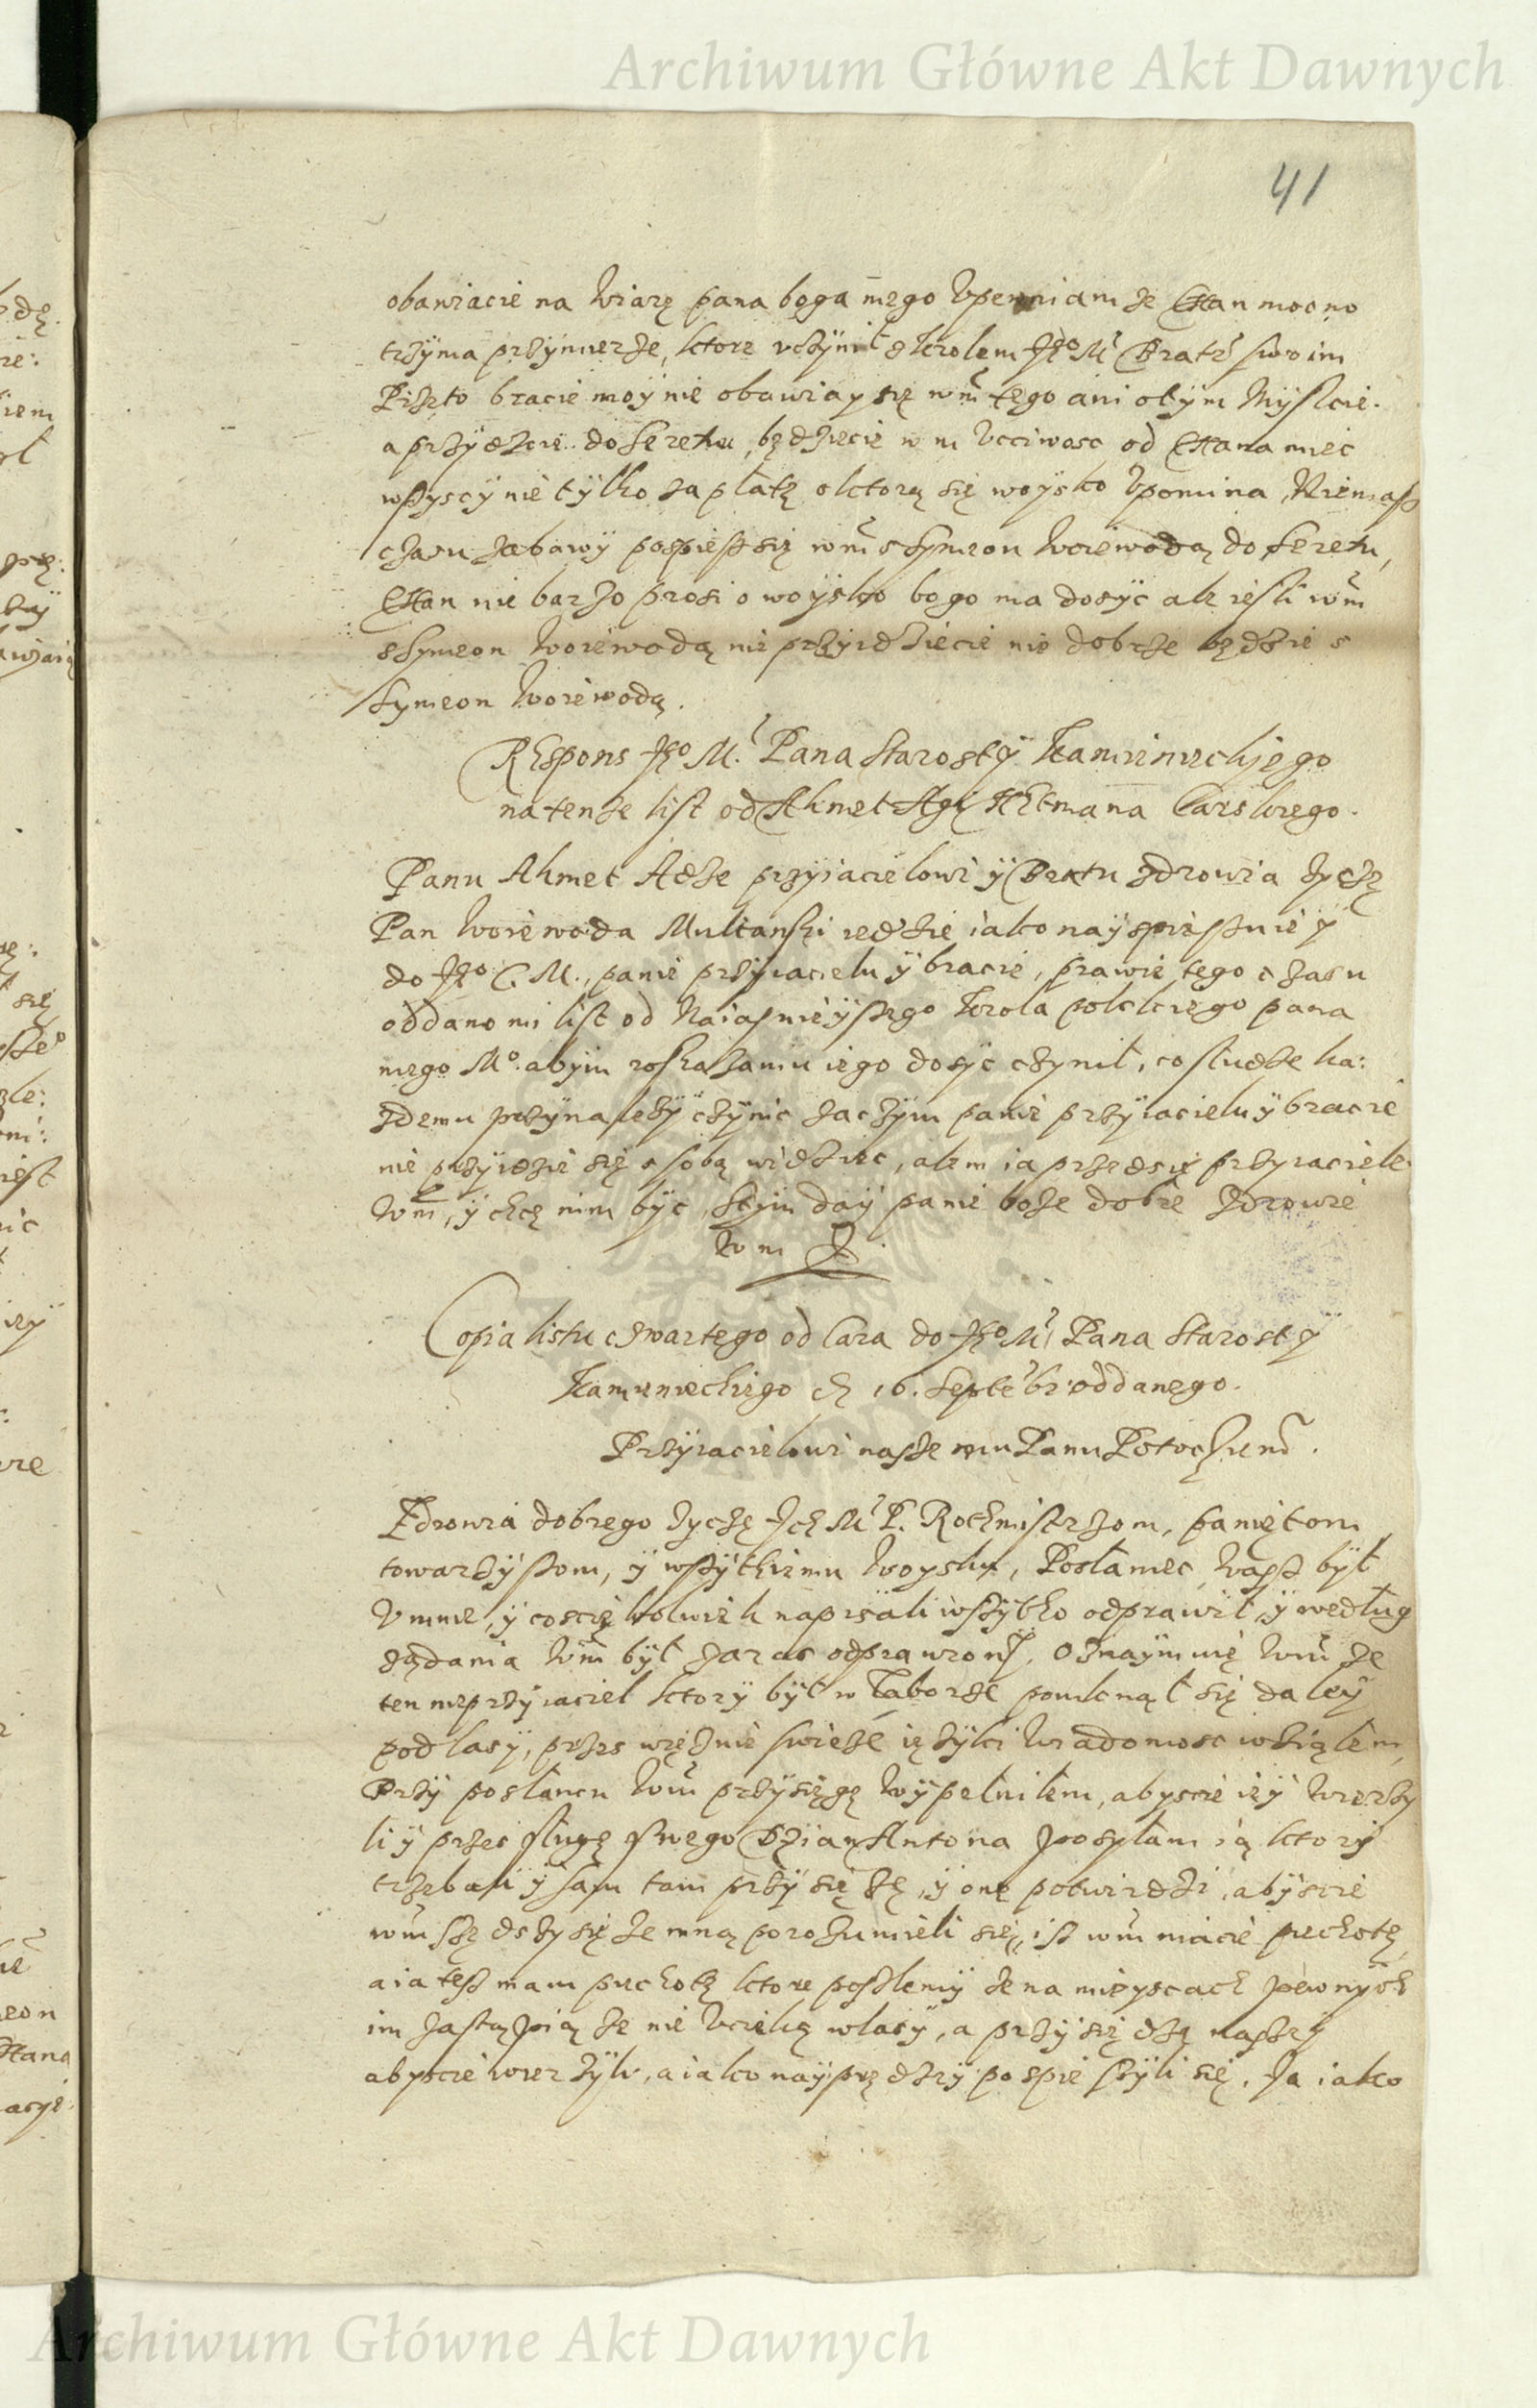 Archiwum Główne Akt Dawnych
41
obawiacie na wiarę pana boga mego Vpewniam ze Chan mocno
trzyma przymierze, ktore vczynił z krolem Jeo Mći Bratẽ swoim
Przeto bracie moy nie obawiay się wm̃ tego ani o tym myslcie.
a przydzcie do Seretu, będziecie wm Vcciwosc od Chana miec
wszyscy nie tylko zapłatę o ktorą się woysko Vpomina, Niemasz
czasu zabawy pospiesz się wm̃ s Symeon woiewodą do Seretu,
Chan nie barzo prosi o woysko bo go ma dosyc ale iesli wm̃
s Symeon woiewodą nie przyidziecie nie dobrze będzie s
Symeon woiewodą.
Respons Jeo M. Pana Starosty Kamienieckiego
na tenze list od Ahmet Agi Hetmana Carskiego.
Panu Ahmet Adze przyiacielowi y Bratu zdrowia zyczę
Pan woiewoda Multanski iedzie iako nayspieszniey
do Jeo C. M., panie przyiacielu y bracie, prawie tego czasu
oddano mi list od Naiasnieyszego Krola polskiego pana
mego Mo. abym roskazaniu iego dosyc czynił, co słudze ka:
zdemu przynalezy czynic zaczym panie przyiacielu y bracie
nie przyidzie się s sobą widziec, alem ia przedsię przyiaciele
wm̃, y chcę nim byc, Stym day panie boze dobre zdrowie
wm
Copia listu czwartego od Cara do Jeo Mći Pana Starosty
Kamienieckiego d. 16. Septẽbr: oddanego.
Przyiacielowi naszemu Panu Potockiem̃.
Zdrowia dobrego zyczę Ich Mći P. Rothmistrzom, paniętom
towarzyszom, y wszytkiemu woysku, Posłaniec wasz był
V mnie, y coscie kolwiek napisali wszytko odprawił, y według
ządania wm̃ był zaras odprawiony. Oznaymuię wm̃ ze
ten nieprzyiaciel ktory był w Taborze pomknął się daley
pod lasy, przes więznie swieze ięzyki wiadomosc wziąłem,
Przy posłancu wm̃ przysięgę wypełniłem, abyscie iey wierzy
li y przes sługę swego Dzian Antona posyłam ią ktory
trzebali y sam tam przysięze, y onę potwirdzi, abyscie
wm̃ ze mną porozumieli się, isz wm̃ macie piechotę,
a ia tesz mam piechotę ktore poszlemy ze na mieyscach pewnych
im zastąpią ze nie Vcieką w lasy, a przysiędze naszey
abyscie wierzyli, a iako nayprędzey pospieszyli się. Ja iako
Archiwum Główne Akt Dawnych